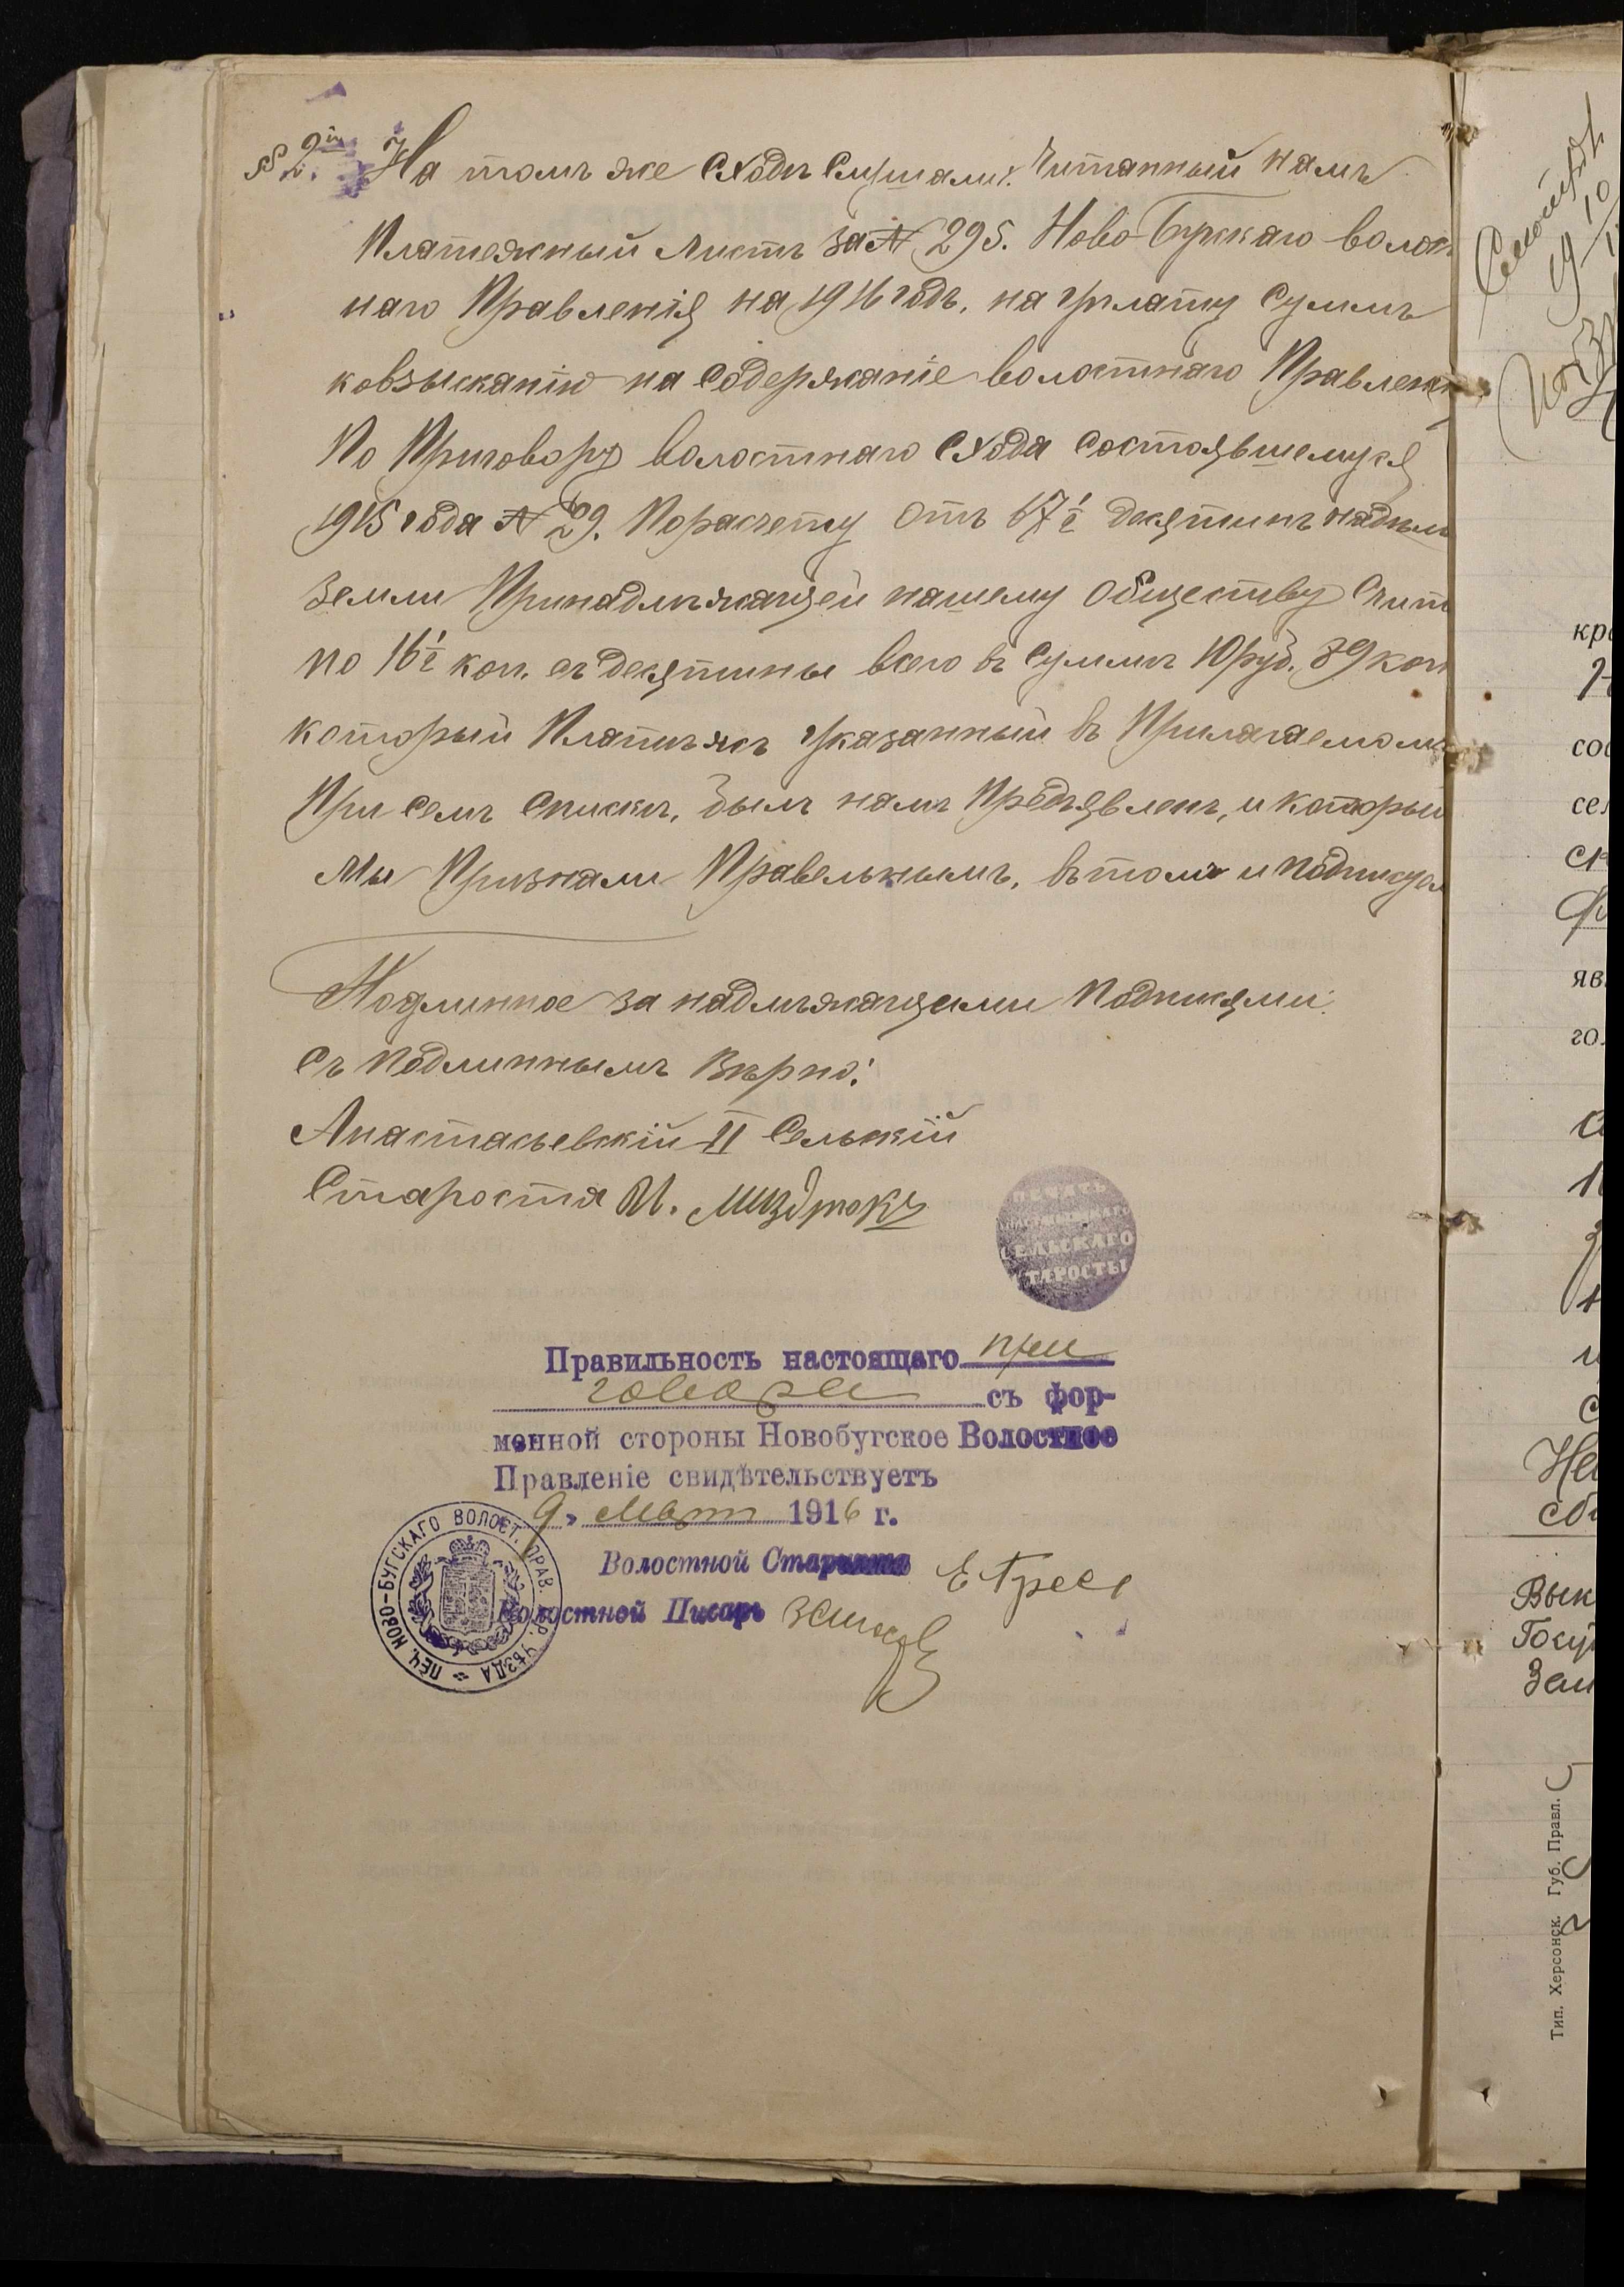 § 2й На томъ же Сходѣ Слушали: Читанный намъ
Платежный Листъ за № 295. Ново-Бугскаго волост
наго Правленія на 1916 годъ, на уплату Суммъ
ковзысканію на Содержаніе волостнаго Правлен
По Приговору волостнаго Схода Состоявшемуся
1915 года № 29. Порасчету Отъ 67½ десятинъ надѣль
Земли Принадлѣжащей нашему Обществу Счит
по 16½ коп. съ десятины всего въ Суммѣ 10 руб. 89 коп
который Платѣжъ указанный въ Прилагаемомъ
При Семъ Спискѣ, былъ намъ Предъявленъ, и который
Мы Признали Правельнымъ, вътомъ и подписуем
Подлинное за надлѣжащими подписями:
Съ подлиннымъ Вѣрно:
Анастасьевскій II Сельскій
Староста И.
ПЕЧАТЬ
СЕЛЬСКАГО
СТАРОСТЫ
Правильность настоящаго при
говора съ фор-
менной стороны Новобугское Волостное
Правленіе свидѣтельствуетъ
9 Март 1916 г.
Волостной Старшина
Волостной Писарь
ПЕЧ. НОВО-БУГСКАГО ВОЛОСТ. ПРАВ. ХЕР. УѢЗДА
кр
со
сел
ск
яв
го
сб
Вык
Госу
Зем
Тип. Херсонск. Губ. Правл.